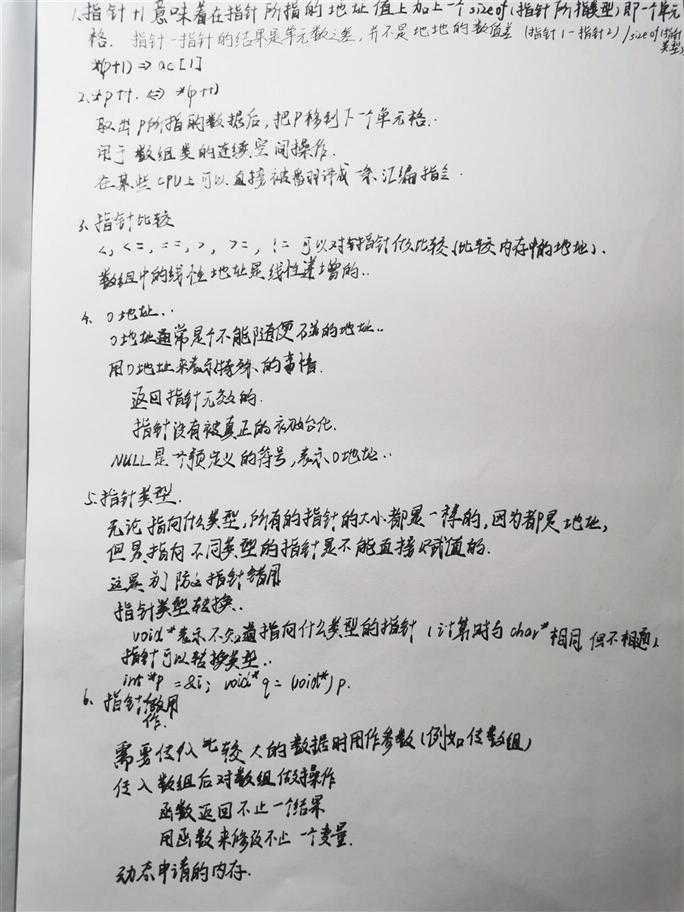 1.指针+1意味着在指针所指的地址值上加上一个sizeof(指针所指类型)即一个单元
格. 指针-指针的结果是单元数之差,并不是地址的数值差 (指针1-指针2)/sizeof(指针类型)
*(p+1) => ac[1]
2.*p++ <=> *(p++)
取出p所指的数据后,把p移到下一个单元格..
用于数组类的连续空间操作.
在某些CPU上可以直接被翻译成一条汇编指令.
3.指针比较
<, <=, ==, >, >=, != 可以对指针做比较(比较内存中的地址).
数组中的线性地址是线性递增的..
4. 0地址..
0地址通常是个不能随便碰的地址..
用0地址来表示特殊的事情.
返回指针无效的.
指针没有被真正的初始化.
NULL是一个预定义的符号,表示0地址..
5.指针类型.
无论指向什么类型,所有的指针的大小都是一样的,因为都是地址,
但是指向不同类型的指针是不能直接赋值的.
这是为了防止指针错用
指针类型转换..
void*表示不知道指向什么类型的指针(计算时与char*相同,但不相通)
指针可以转换类型..
int *p = &i; void* q = (void*)p.
6. 指针作用
需要传入比较大的数据时用作参数(例如传数组)
传入数组后对数组做操作
函数返回不止一个结果
用函数来修改不止一个变量.
动态申请的内存.